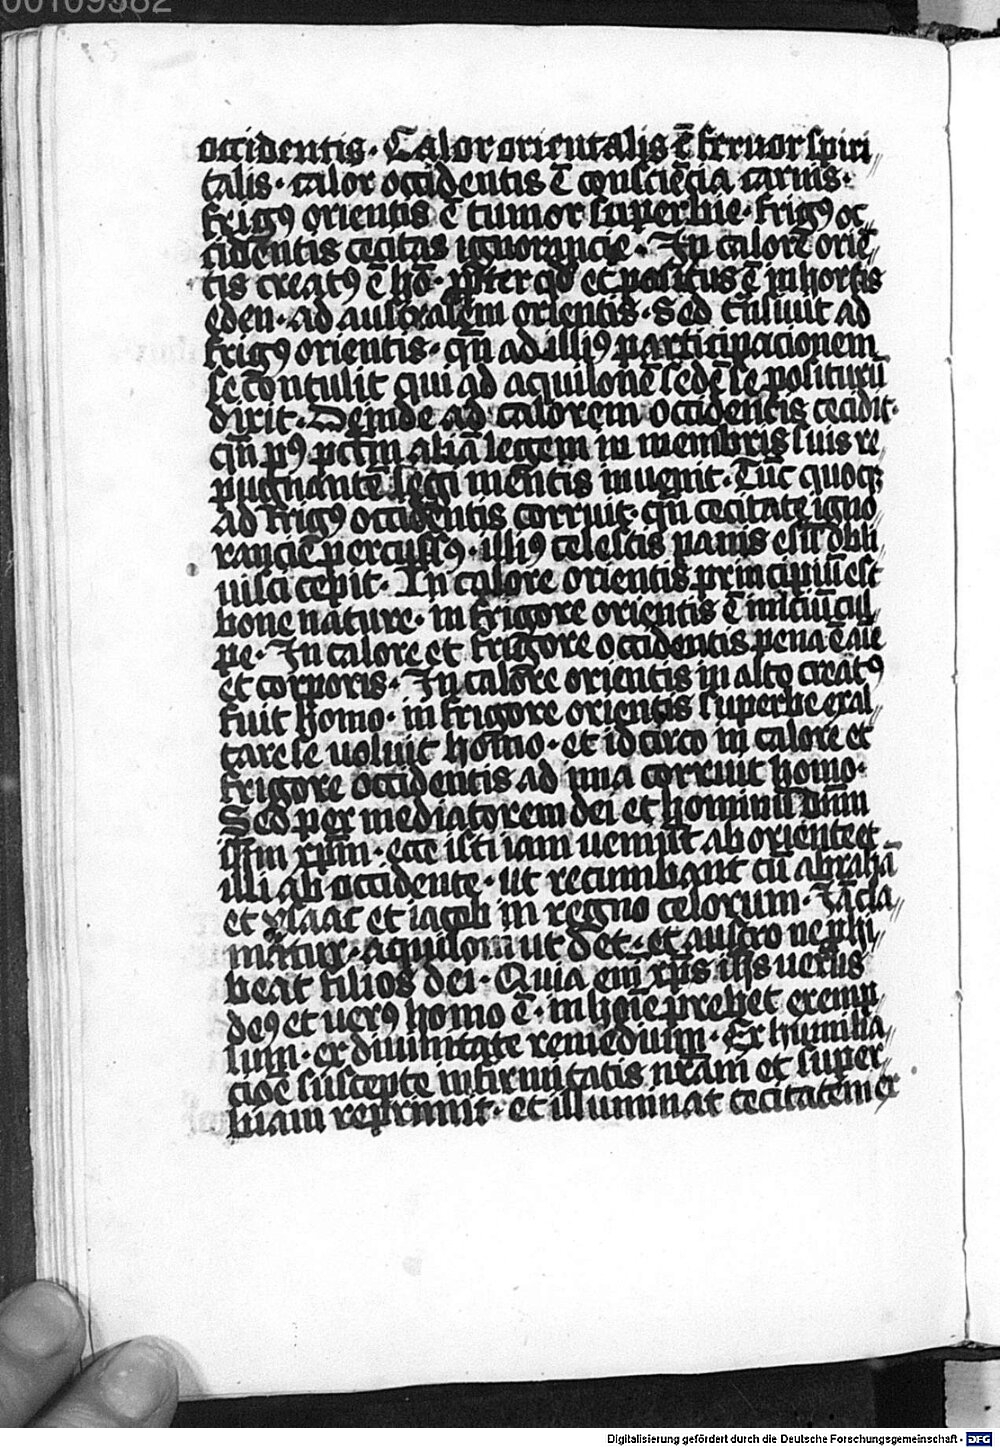 00109382
occidentis · Calor orientalis ē feruor spiri//
talis · calor occidentis ē consciēcia carnis ·
frigꝰ orientis ē tumor superbie · frigꝰ oc//
cidentis cecitas ignorancie · In calore oriē
tis creatꝰ ē hō · ꝓpter qđ et positus ē in hortis
eden · ad australem orientis · Sed
frigꝰ orientis · qn̄ ad illiꝰ participacionem
se contulit qui ad aquilonē sedē se positurū
dixit · Deinde ad calorem occidentis cecidit ·
qn̄ pꝰ pctm̄ aliā legem in membris suis re
pugnantē legi mentis inuenit · Tūc quoqꝫ
ad frigꝰ occidentis corruit · qn̄ cecitate igno//
rancie percussꝰ · illiꝰ celestis panis esū obli//
uisci cepit · In calore orientis principiū est
bone nature · in frigore orientis ē iniciū cul//
pe · In calore et frigore occidentis pena ē aīe
et corporis · In calore orientis in alto creatꝰ
fuit homo · in frigore orientis superbe exal//
tare se uoluit homo · et idcirco in calore et
frigore occidentis ad ima corruit homo ·
Sed per mediatorem dei et hominū dn̄m
ihm xpm̄ · ecce isti iam ueniūt ab oriente et
illi ab occidente · ut recumbant cū abrahā
et ysaac et iacob in regno celorum · Iā cla//
matur · aquiloni ut det · et austro ne phi//
beat filios dei · Quia eni xp̄s ihs uerus
deꝰ et uerꝰ homo ē · in hoīe prebet exemp//
lum · ex diuinitate remedium · Ex humilia//
cioē suscepte infirmitatis nr̄am et super
biam reprimit · et illuminat cecitatem ex
Digitalisierung gefördert durch die Deutsche Forschungsgemeinschaft - DFG